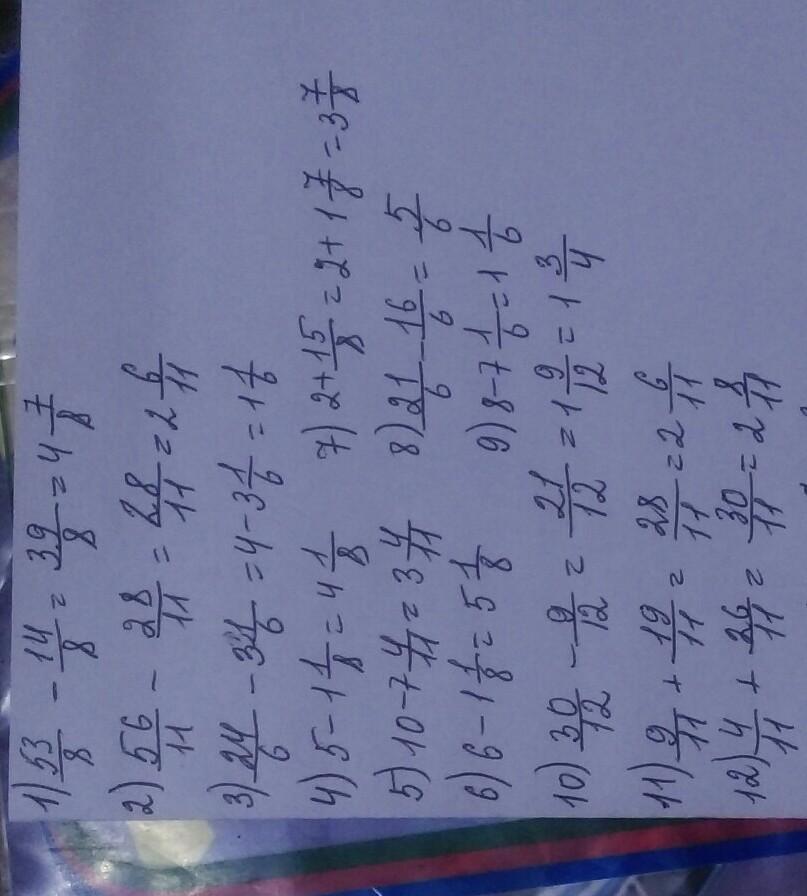 1) 53/8 - 14/8 = 39/8 = 4 7/8
2) 56/11 - 28/11 = 28/11 = 2 6/11
3) 24/6 - 3 1/6 = 4 - 3 1/6 = 1 1/6
4) 5 - 1 1/8 = 4 1/8
5) 10 - 7 4/11 = 3 4/11
6) 6 - 1 1/8 = 5 1/8
7) 2 + 15/8 = 2 + 1 7/8 = 3 7/8
8) 21/6 - 16/6 = 5/6
9) 8 - 7 1/6 = 1 1/6
10) 30/12 - 9/12 = 21/12 = 1 9/12 = 1 3/4
11) 9/11 + 19/11 = 28/11 = 2 6/11
12) 4/11 + 26/11 = 30/11 = 2 8/11